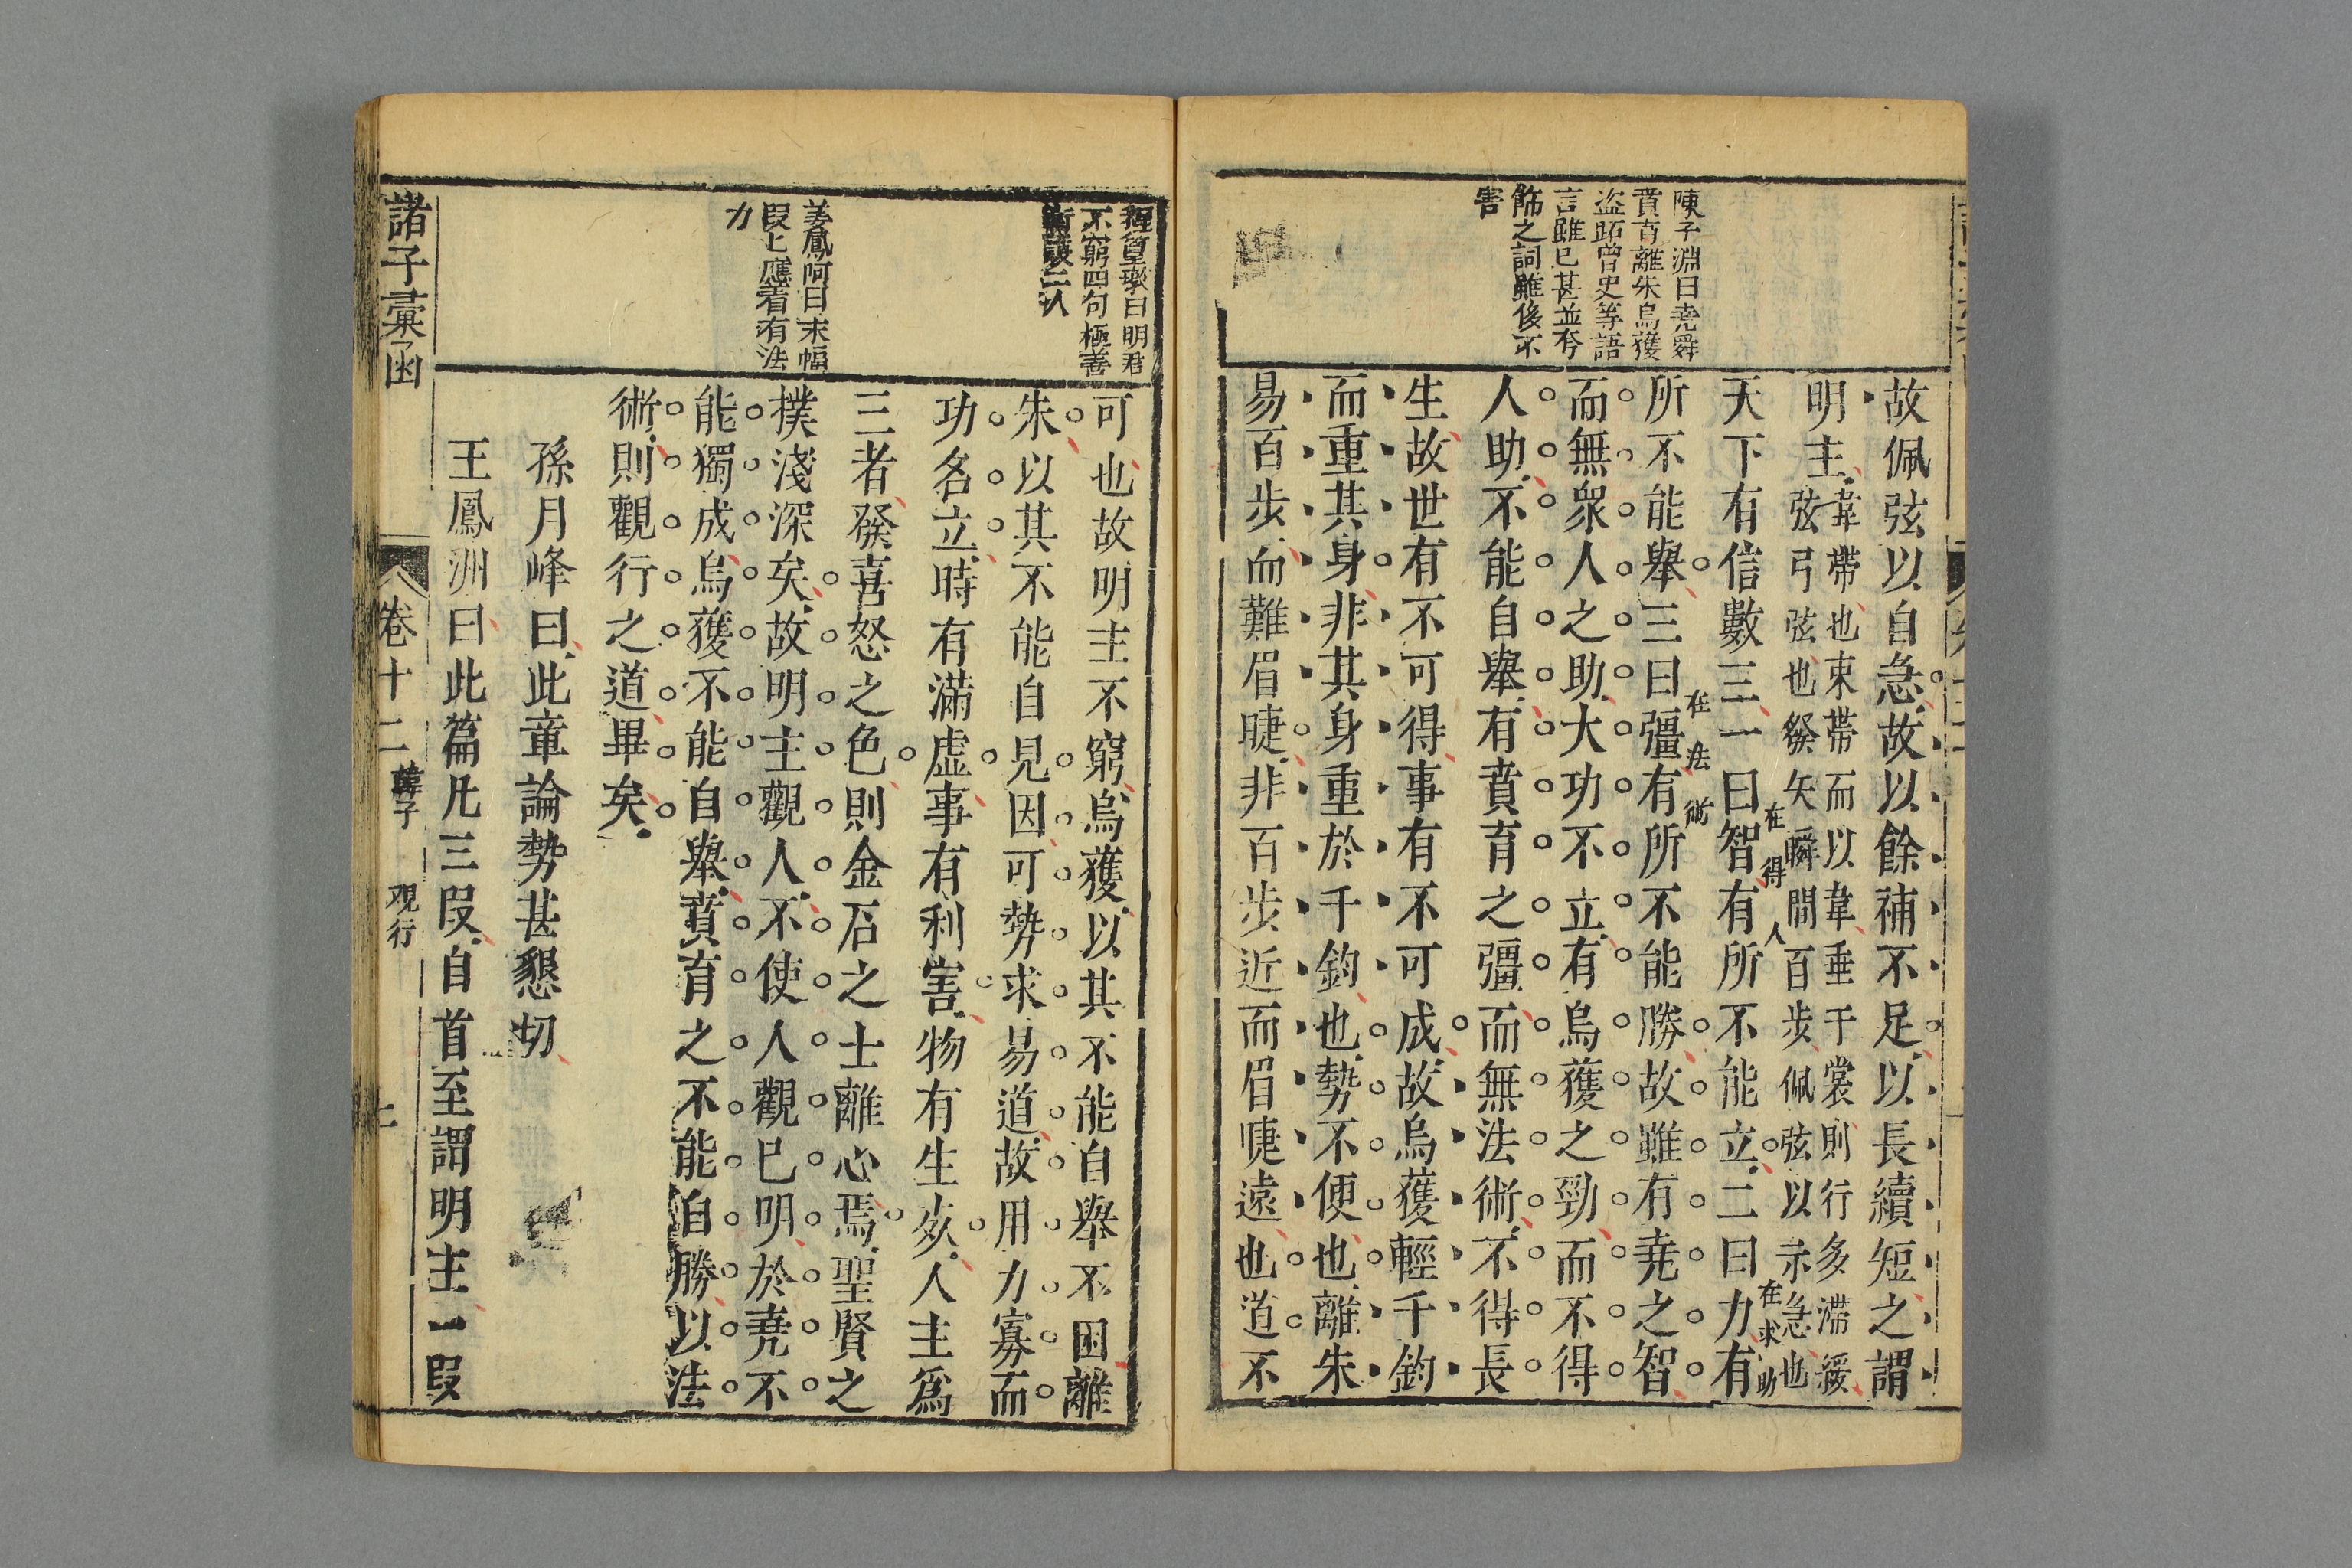 陳子淵曰堯舜
賁育離朱烏獲
盜跖曾史等語
言雖已甚並夸
飾之詞雖後不
害
故佩弦以自急故以餘補不足以長續短之謂
明主
韋帶也束帶而以韋垂于裳則行多滯緩
弦弓弦也發矢瞬間百步佩弦以示急也
天下有信數三一曰智有所不能立二曰力有
在得人
在求助
所不能舉三曰彊有所不能勝故雖有堯之智
在法術
而無眾人之助大功不立有烏獲之勁而不得
人助不能自舉有賁育之彊而無法術不得長
生故世有不可得事有不可成故烏獲輕千鈞
而重其身非其身重於千鈞也勢不便也離朱
易百步而難眉睫非百步近而眉睫遠也道不
曰明君
不窮四句極善
姜鳳阿曰末幅
段上應看有法
力
可也故明主不窮烏獲以其不能自舉不困離
朱以其不能自見因可勢求易道故用力寡而
功名立時有滿虛事有利害物有生死人主為
三者發喜怒之色則金石之士離心焉聖賢之
撲淺深矣故明主觀人不使人觀已明於堯不
能獨成烏獲不能自舉賁育之不能自勝以法
術則觀行之道畢矣
孫月峰曰此章論勢甚懇切
王鳳洲曰此篇凡三段自首至謂明主一段
諸子彙函
卷十二
韓子
观行